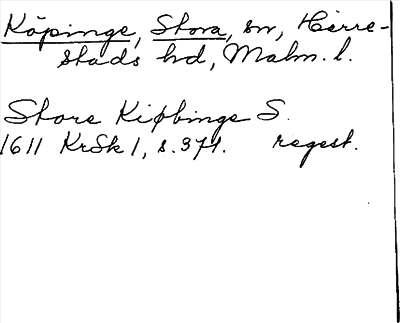 Köpinge, Stora, sn, Herre-
stads hd, Malm. l.
Store Kiøbinge S.
1611 KrSk 1, s. 371. regest.